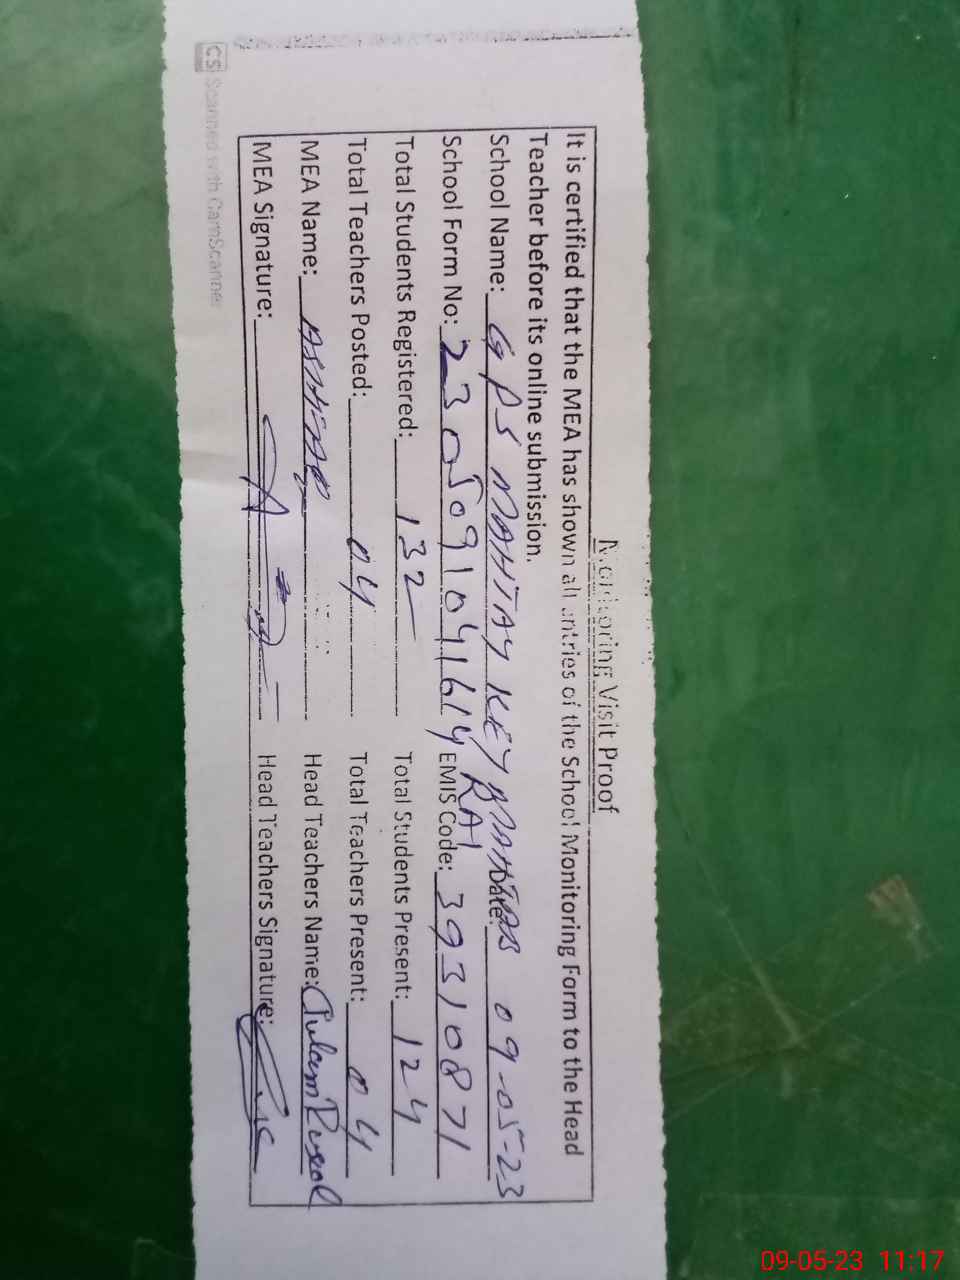 Monitoring Visit Proof
It is certified that the MEA has shown all entries of the School Monitoring Form to the Head
Teacher before its online submission.
School Name: GPS MAHTAY KEY Date: 09-05-23
RAI
School Form No: 2305091041614 EMIS Code: 39310871
Total Students Registered: 132 Total Students Present: 124
Total Teachers Posted: 04 Total Teachers Present: 04
MEA Name: Head Teachers Name: Gulam Rasool
MEA Signature: Head Teachers Signature:
CS Scanned with CamScanner
09-05-23 11:17